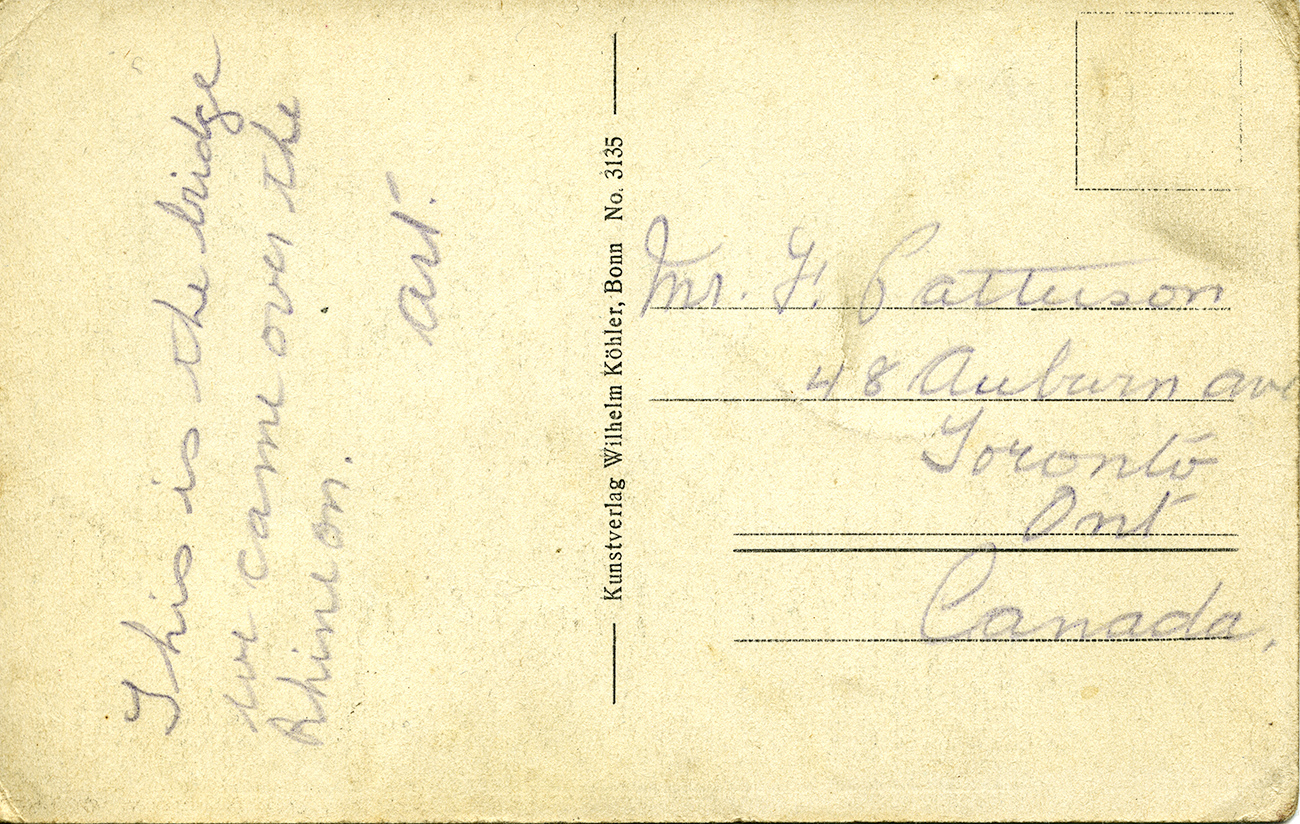 This is the bridge
we came over the
Rhine on.
Art.
Kunstverlag Wilhelm Köhler, Bonn No. 3135
Mr. F. Patterson
48 Auburn ave
Toronto
Ont
Canada.